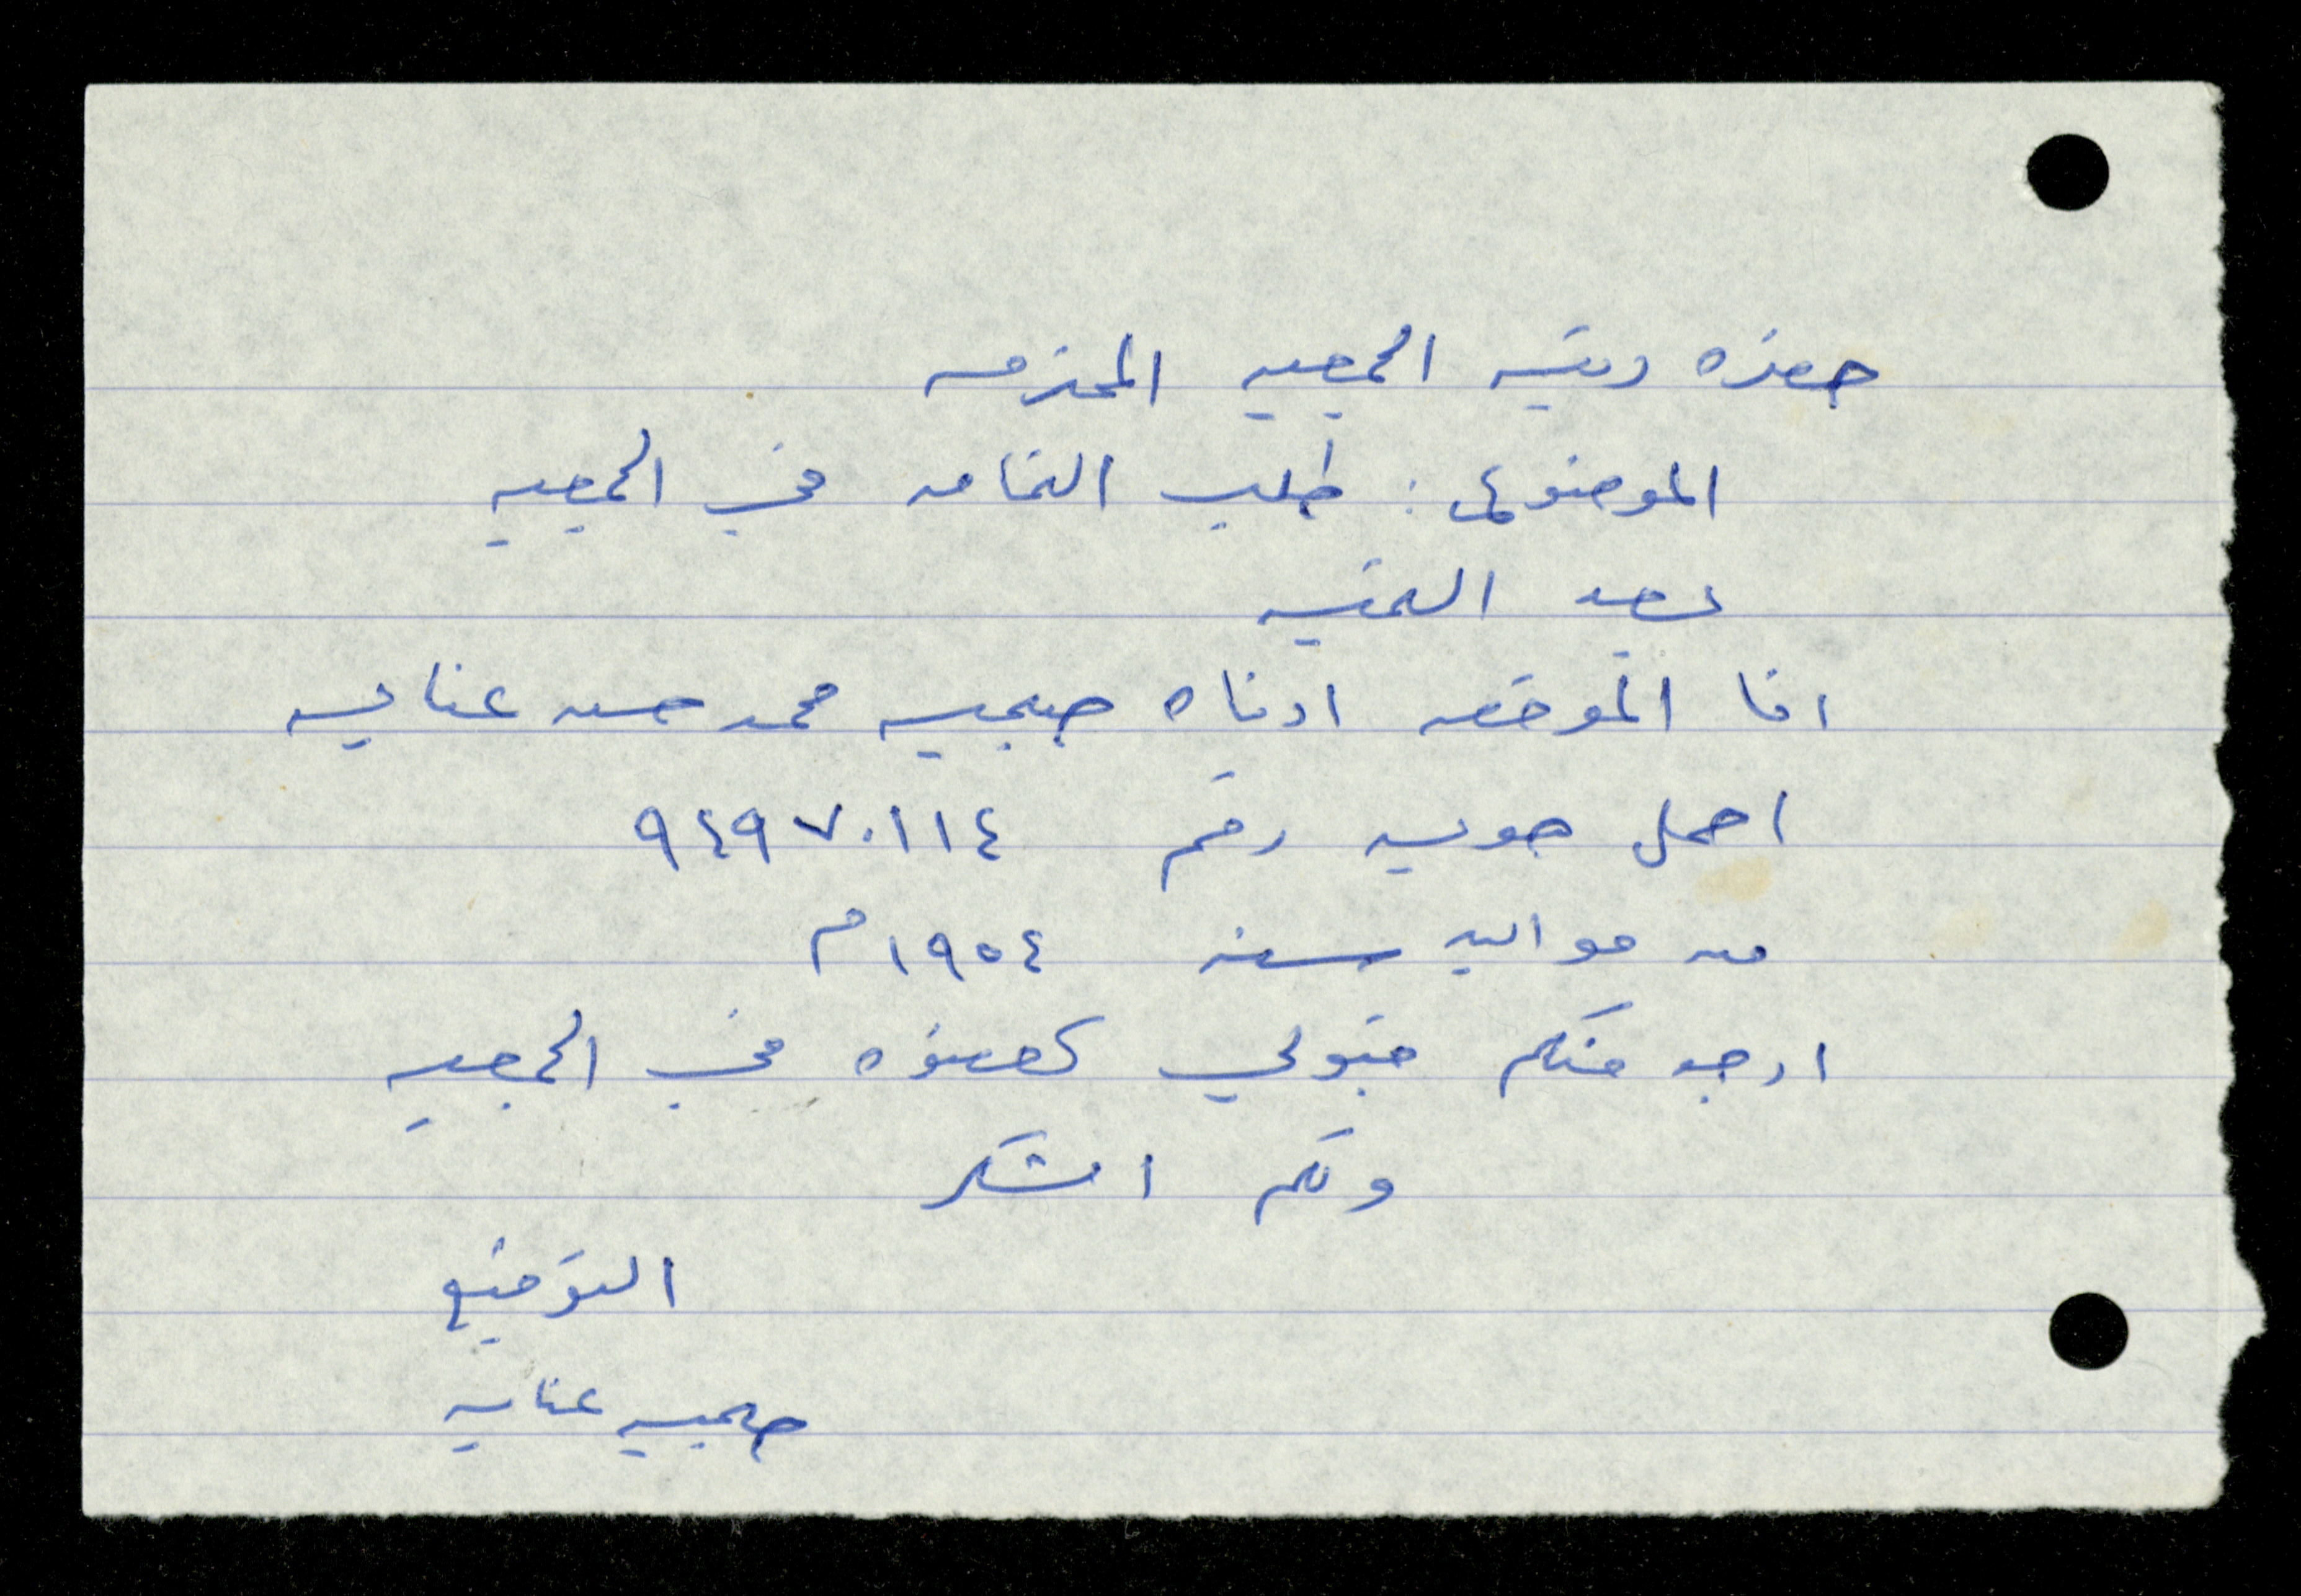 حضره رئيسه الجمعيه المحترمه
الموضوع : طلب انضمام في الجمعيه
بعد التحيه
انا الموقعه ادناه صبحيه محمد حسن عنايه
احمل هويه رقم ٩٤٩٧٠١١٤
من مواليد سنه ١٩٥٤م
ارجو منكم قبولي كعضوه في الجمعيه
ولكم الشكر
التوقيع
صبحيه عنايه